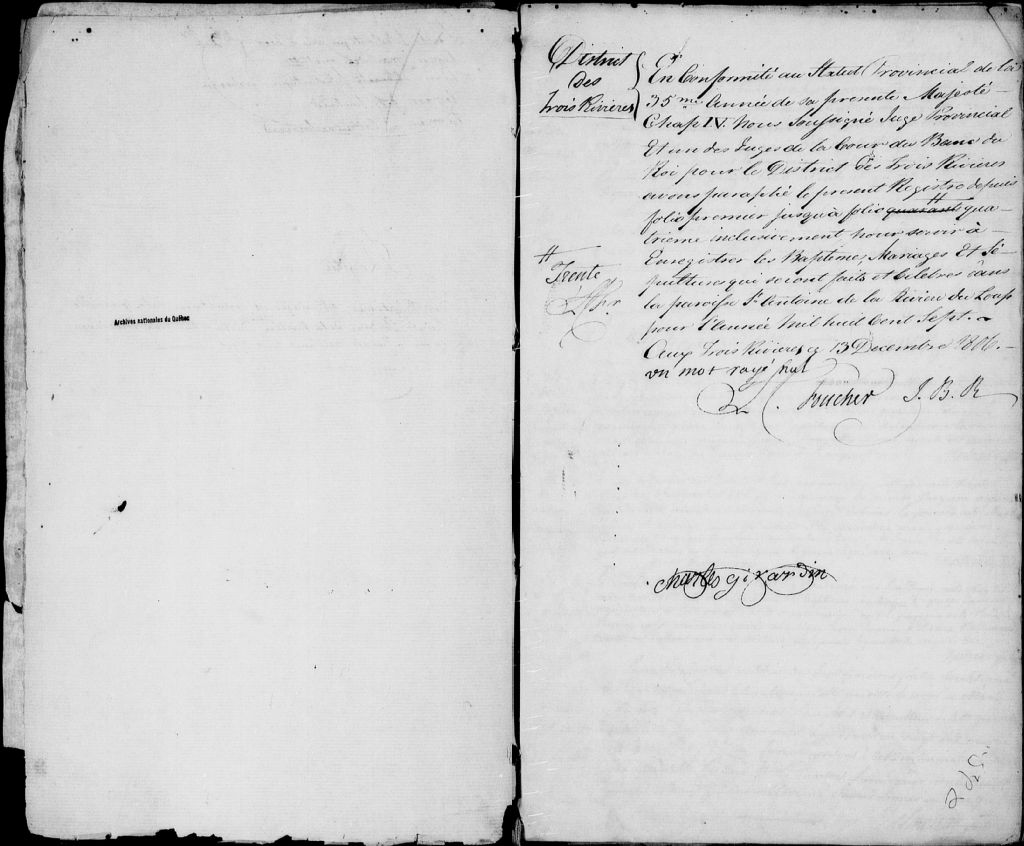 Archives nationales du Québec
District
des
Trois Rivieres
En Conformité au Statut Provincial de la
35me Année de sa presente Majesté
Chap IV. Nous Soussigné Juge Provincial
Et un des Juges de la Cour du Banc du
Roi pour le District des Trois Rivieres
avons paraphé le present Registre depuis
folio premier jusqu'à folio quarante qua-
trieme inclusivement pour servir à
Enregistrer les Baptêmes, Mariages Et Sé-
pultures qui seront faits et Célébrés dans
la paroisse St Antoine de la Riviere du Loup
pour l'Année Mil huit Cent Sept.
Aux Trois Rivieres 13 Decembre 1806.
un mot rayé nul
Foucher J. B. R
#
Trente
Charles Girardin